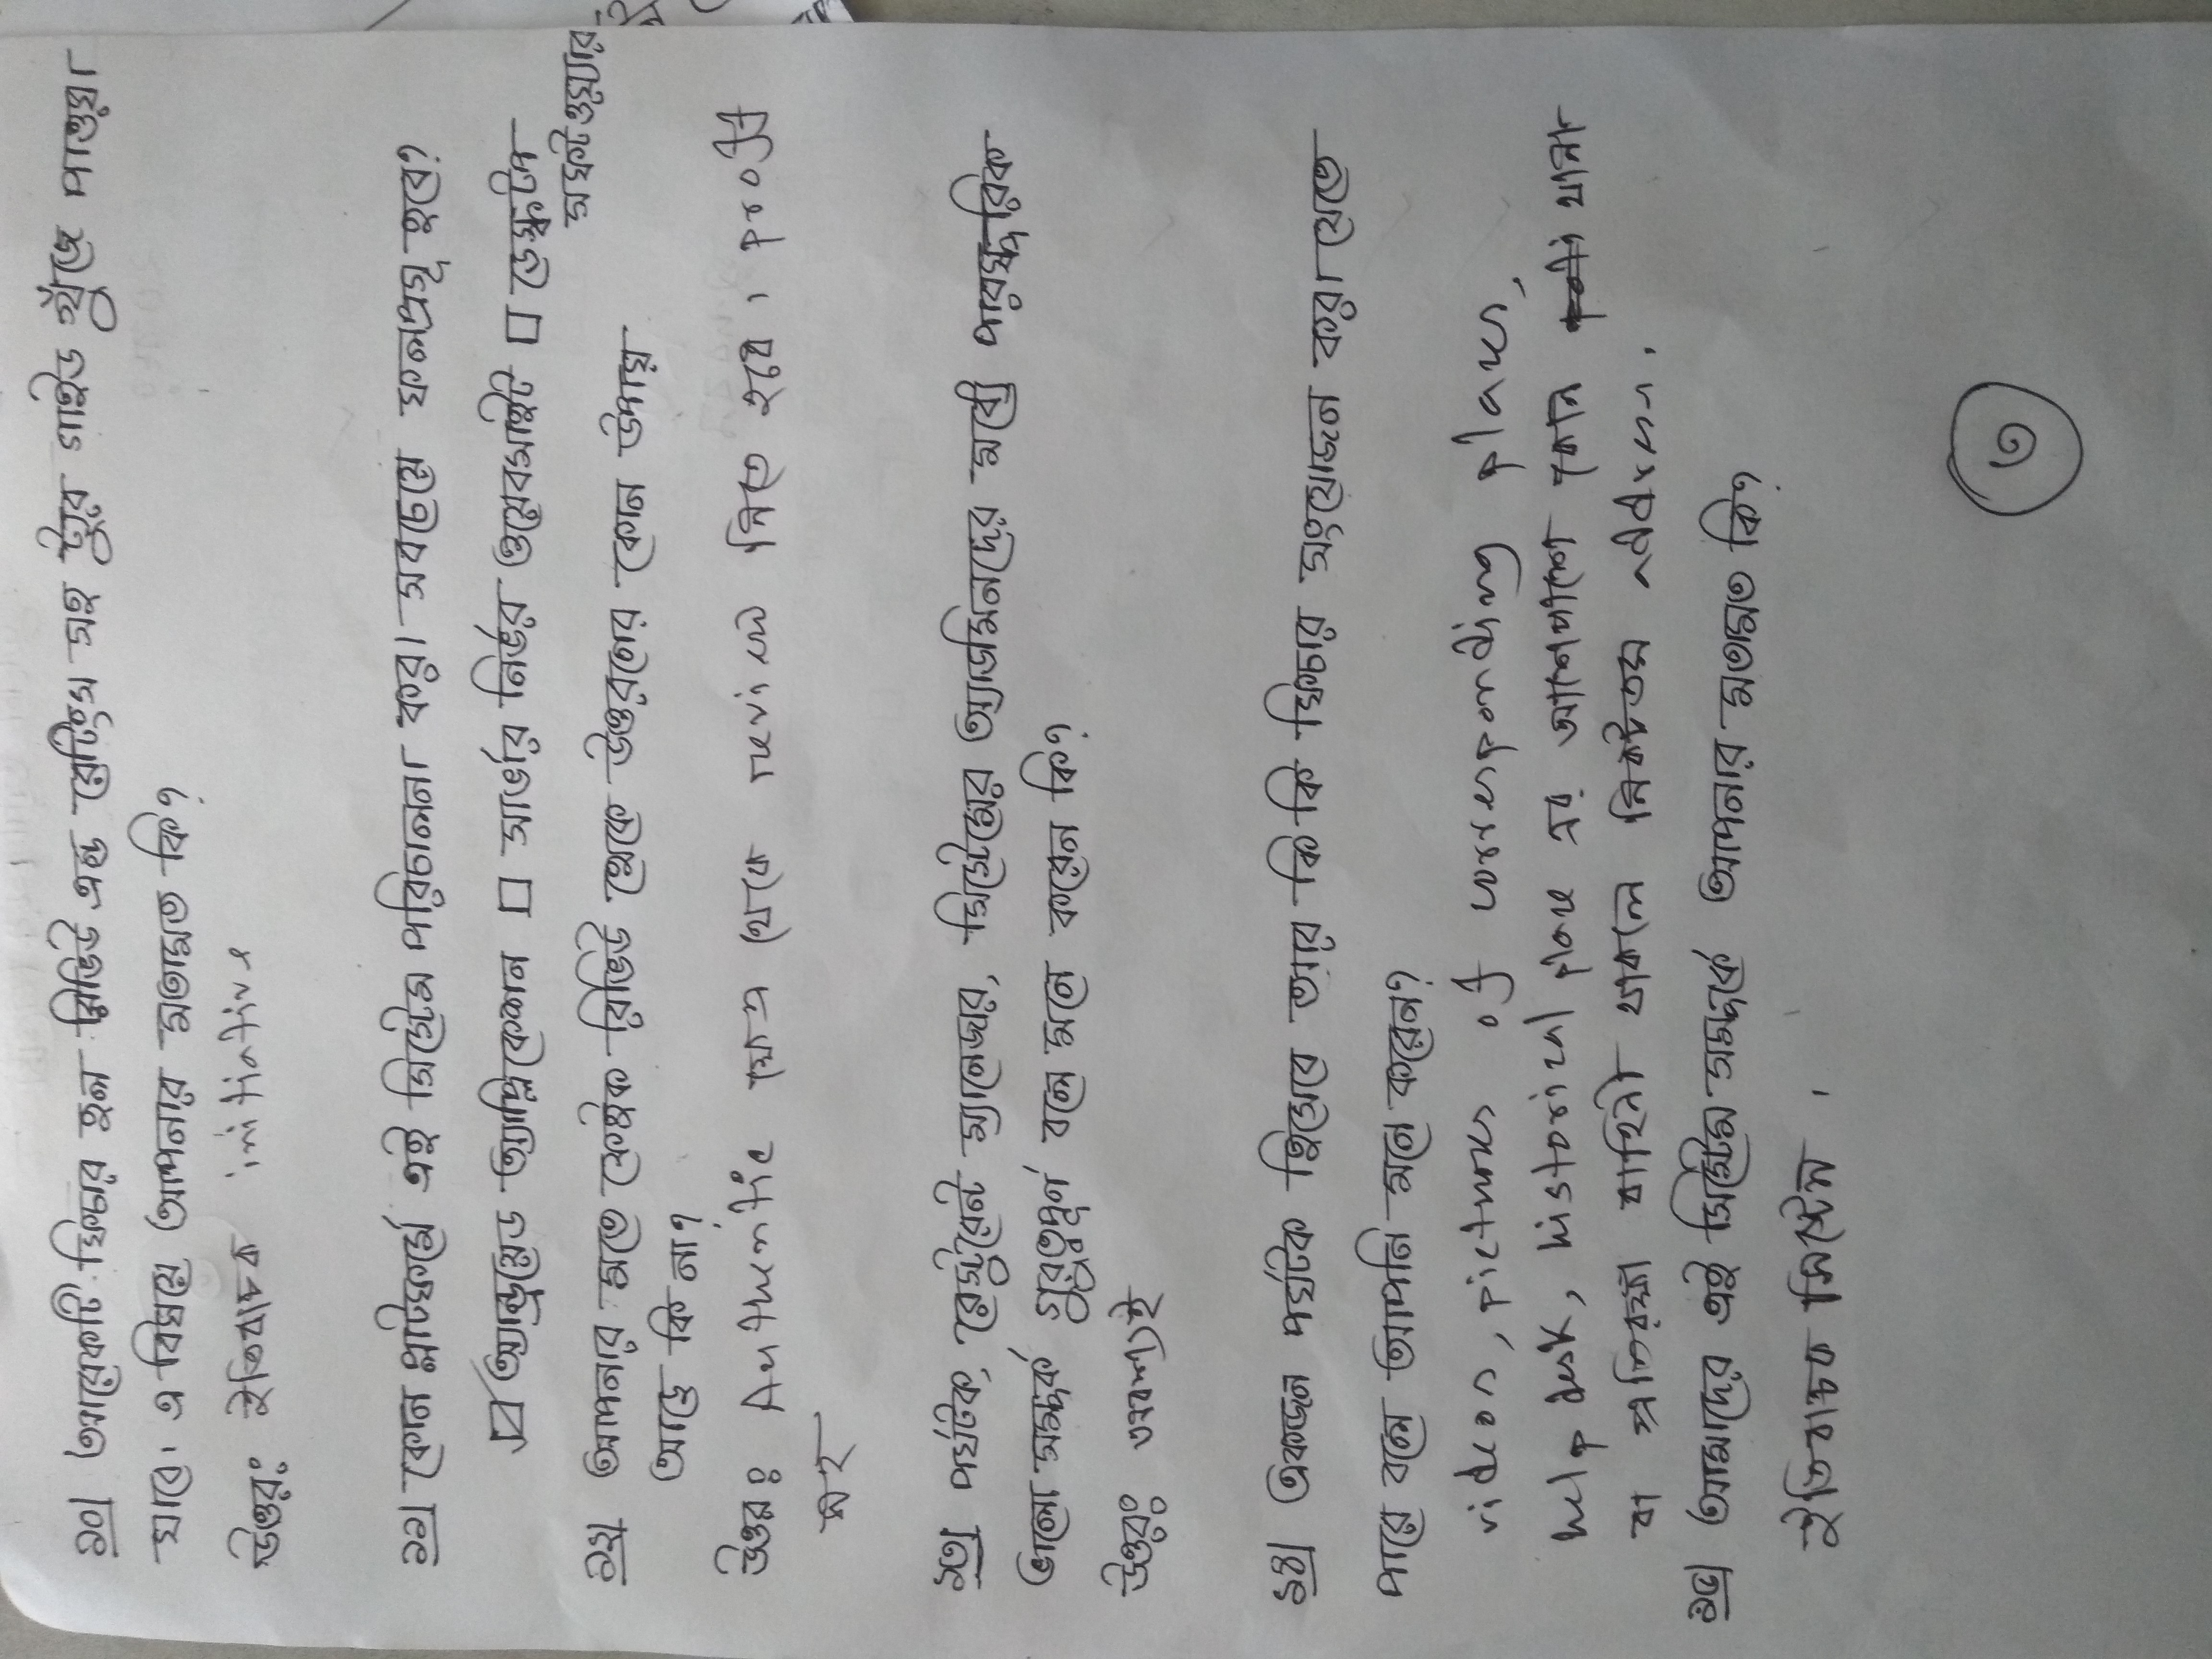 ১০। আরেকটি ফিচার হল রিভিউ এন্ড রেটিংস সহ ট্যুর গাইড খুঁজে পাওয়া
যাবে। এ বিষয়ে আপনার মতামত কি?
উত্তরঃ ইতিবাচক initiative
১১। কোন প্লাটফর্মে এই সিস্টেম পরিচালনা করা সবচেয়ে ফলপ্রসূ হবে?
☑ অ্যান্ড্রয়েড অ্যাপ্লিকেশন □ সার্ভার নির্ভর ওয়েবসাইট □ ডেস্কটপ
সফটওয়্যার
১২। আপনার মতে ফেইক রিভিউ থেকে উত্তরণের কোন উপায়
আছে কি না?
উত্তরঃ Authentic থেকে review নিতে হবে। proff
সহ
১৩। পর্যটক, রেস্টুরেন্ট ম্যানেজার, সিস্টেমের অ্যাডমিনদের মধ্যে পারস্পরিক
ভালো সম্পর্ক গুরুত্বপূর্ণ বলে মনে করেন কি?
উত্তরঃ অবশ্যই
১৪। একজন পর্যটক হিসেবে আর কি কি ফিচার সংযোজন করা যেতে
পারে বলে আপনি মনে করেন?
videos, pictures of corresponding places,
help desk, historical place এর আশেপাশে কোন থানা
বা প্রতিরক্ষা বাহিনী থাকলে নিকটতম address.
১৫। আমাদের এই সিস্টেম সম্পর্কে আপনার মতামত কি?
ইতিবাচক সিস্টেম।
৩